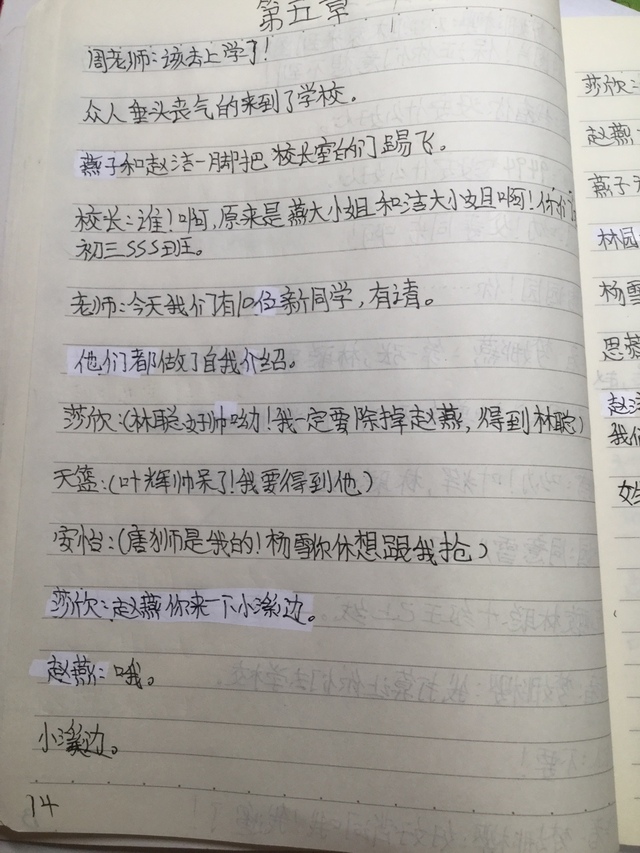 第五章
周老师:该去上学了!
众人垂头丧气的来到了学校。
燕子和赵洁一脚把校长室的门踢飞。
校长:谁!啊,原来是燕大小姐和洁大小姐啊!你们
初三SSS班。
老师:今天我们有10位新同学,有请。
他们都做了自我介绍。
莎欣:(林聪好帅呦!我一定要除掉赵燕,得到林聪)
天篮:(叶辉帅呆了!我要得到他)
安怡:(唐狮是我的!杨雪你休想跟我抢)
莎欣:赵燕你来一下小溪边。
赵燕:哦。
小溪边。
14
莎欣:
赵燕
燕子
林园
杨雪
思慕
赵洁
我们